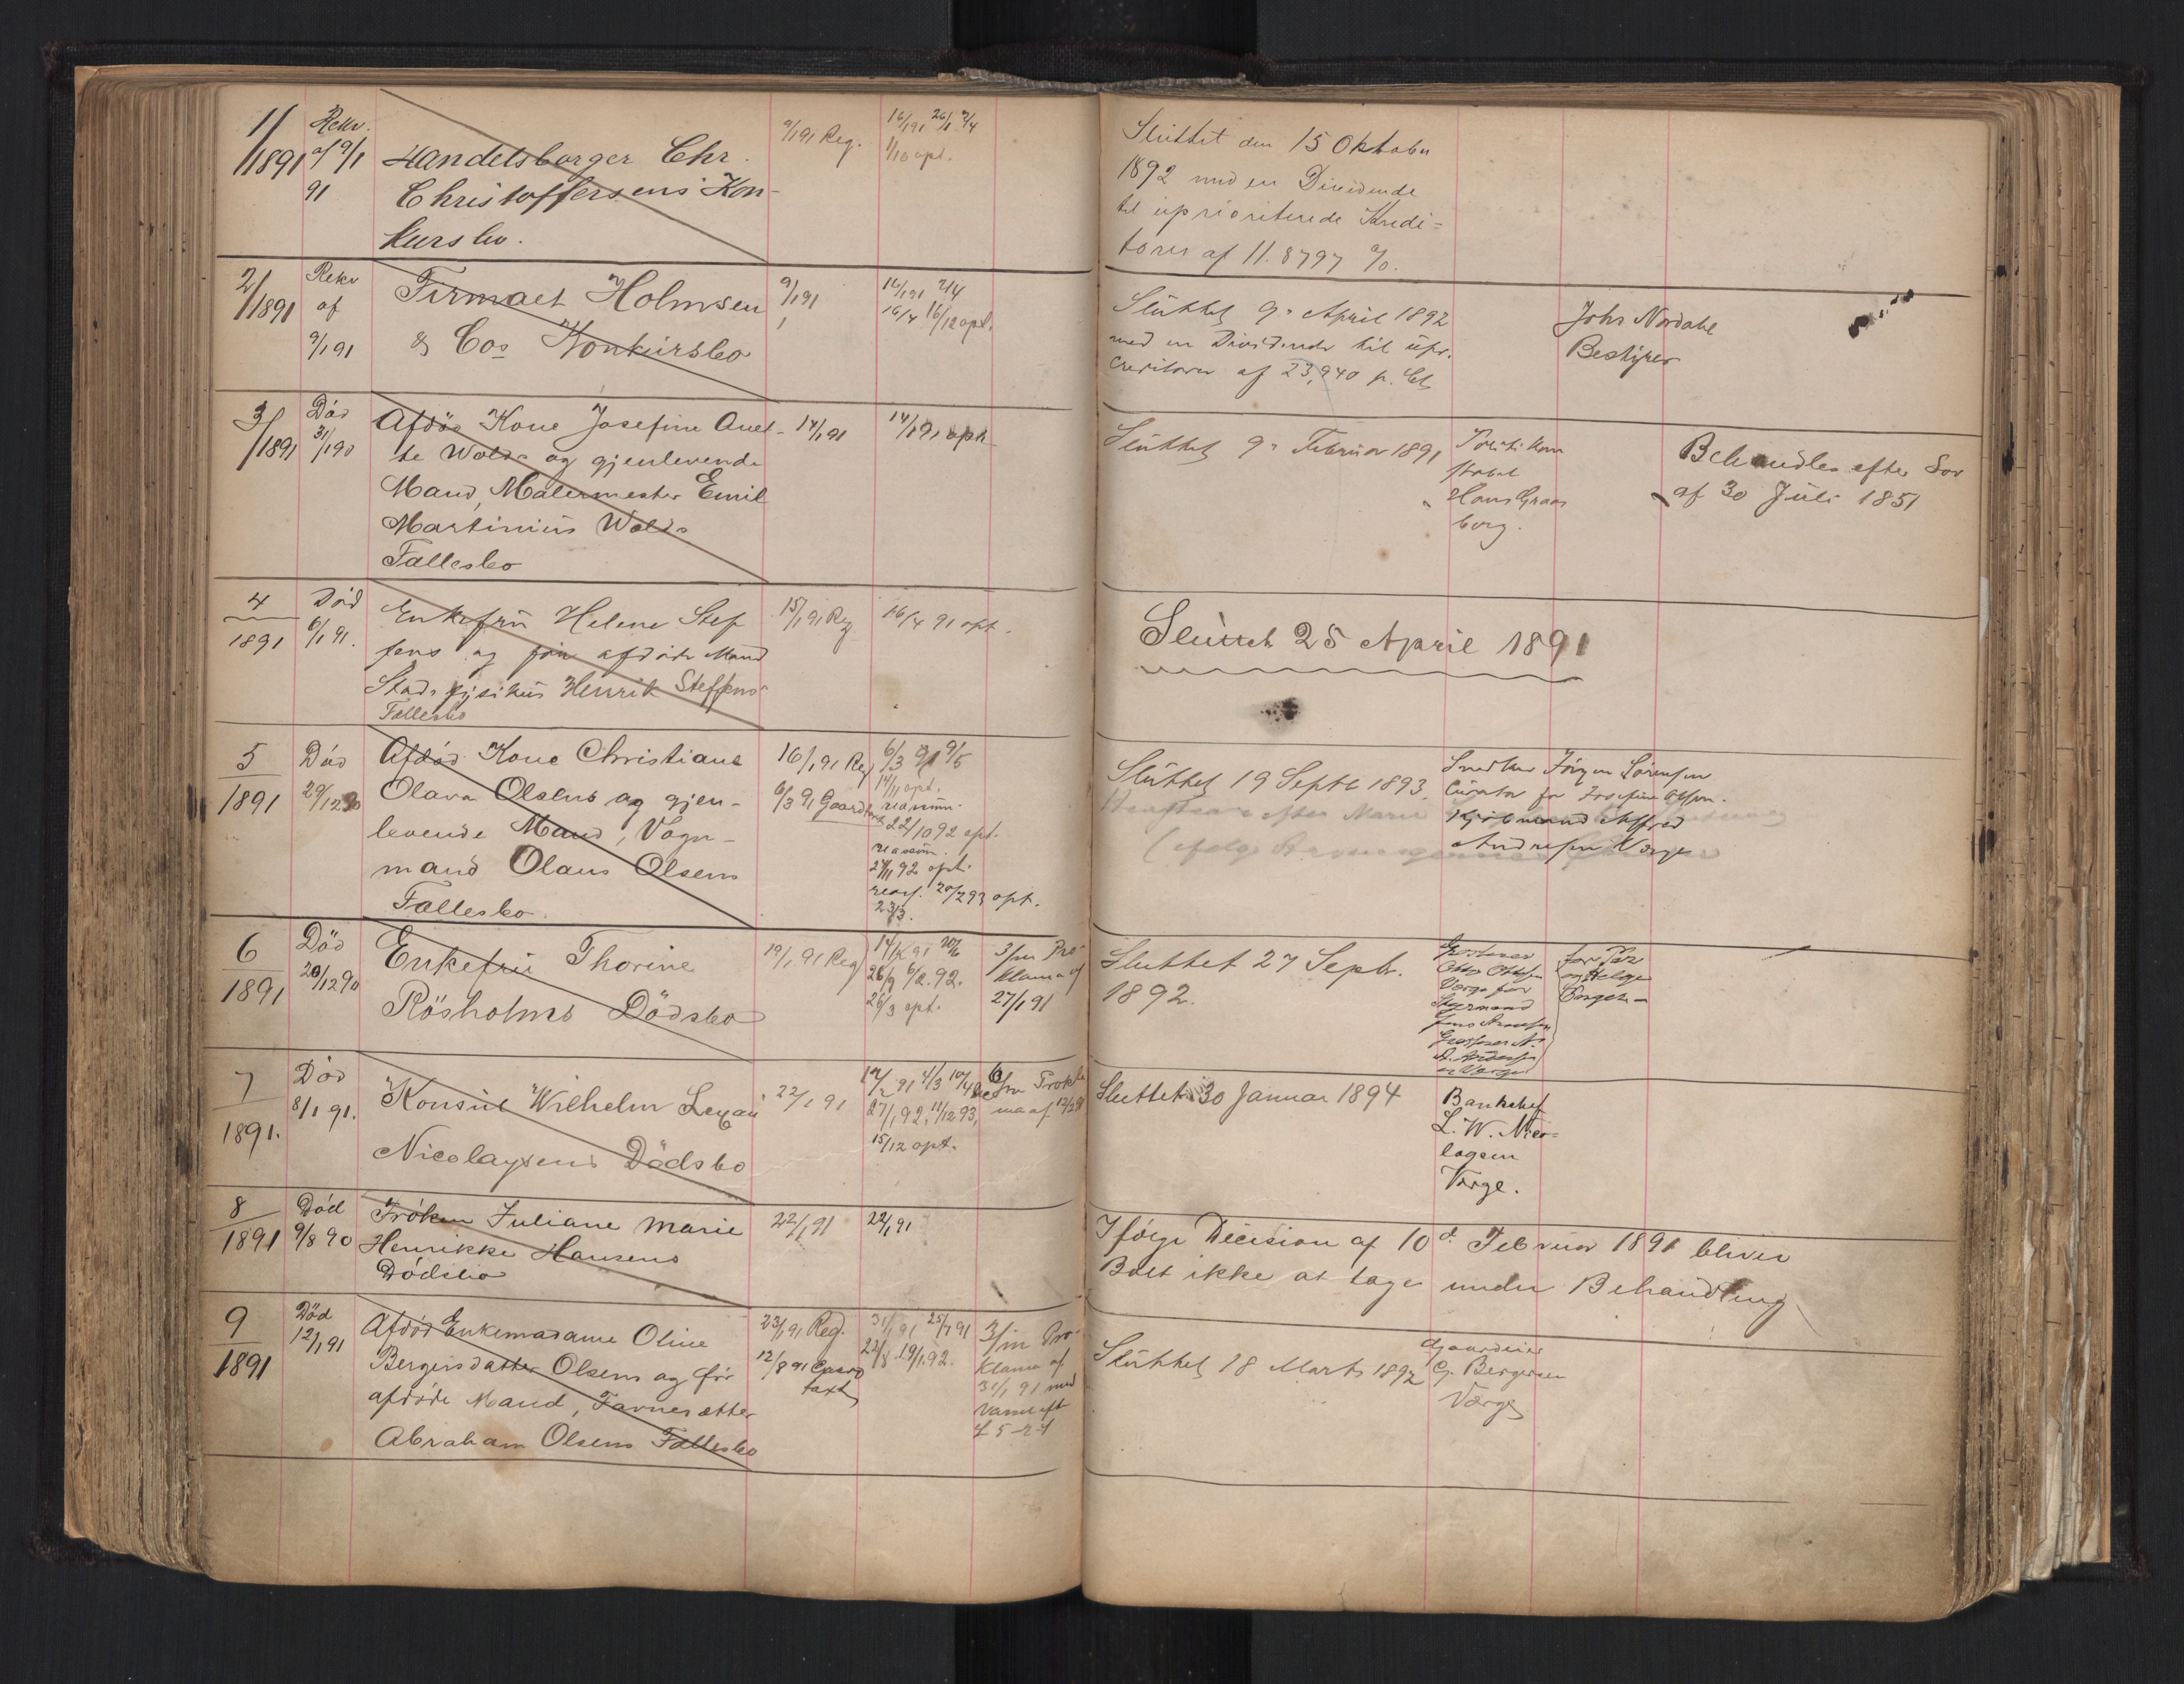 1/1891
Rekv.
af 9/1
91
Handelsborger Chr.
Christoffersens Kon-
kursbo.
9/1 91 Reg.
16/1 91 26/1 2/4
1/10 opt.
Sluttet den 15 Oktober
1892 med en Dividende
til uprioriterede Kredi=
torer af 11.8797 %.
2/1891
Rekv
af
9/1 91
Firmaet Holmsen
& Cos Konkursbo
9/1 91
16/1 91 2/4
16/4 16/12 opt.
Sluttet 9de April 1892
med en Dividende til upr.
Creditorer af 23,940 p. Ct.
Johs Nordahl
Bestyrer
3/1891
Död
31/1 90
Afdöd Kone Josefine Anet-
te Wolds og gjenlevende
Mand, Malermester Emil
Martinius Wolds
Fællesbo
14/1 91
14/1 91 opt.
Sluttet 9de Februar 1891
Politikon
stabel
Hans Graas
borg.
Behandles efter Lov
af 30 Juli 1851
4
1891
Död
6/1 91.
Enkefru Helene Stef
fens og før afdøde Mand
Stadsfysikus Henrik Steffens
Fællesbo
15/1 91 Reg
16/4 91 opt.
Sluttet 25 April 1891
5
1891
Död
29/12 90
Afdöd Kone Christiane
Olava Olsens og gjen-
levende Mand, Vogn-
mand Olaus Olsens
Fællesbo.
16/1 91 Reg
6/3 91 Gaardtaxt
6/3 91 9/5
14/11 opt.
reassum.
22/10 92 opt.
reassum.
24/11 92 opt.
reass. 20/2 93 opt.
23/3.
Sluttet 19 Septb 1893.
Snedker Jörgen Sörensen
Curator for Josefine Olsen.
Kjöbmand Alfred
Andresen Værge
6
1891
Död
20/12 90
Enkefru Thorine
Rösholms Dödsbo
19/1 91 Reg
26/9 6/2. 92.
26/3 opt.
3/m Pro-
klama af
27/1 91
Sluttet 27 Septr.
1892.
Grosserer
Otto Ottesen
Værge for
Styrmand
7
1891.
Död
8/1 91.
Konsul Wilhelm Lexau
Nicolaysens Dödsbo
22/1 91
27/1 92, 11/12 93,
15/12 opt.
Sluttet 30 Januar 1894
Bankchef
L. W. Nico=
laysen
Værge.
8
1891
Död
9/8 90
Fröken Juliane Marie
Henrikke Hansens
Dödsbo
22/1 91
22/1 91
Ifølge Decision af 10d. Februar 1891 bliver
Boet ikke at tage under Behandling
9
1891
Död
12/1 91
Afdöd Enkemadame Oline
Bergersdatter Olsens og før
afdøde Mand, Favnesætter
Abraham Olsens Fællesbo
23/1 91 Reg.
12/8 91 Gaard
taxt
31/1 91 25/7 91
22/8 19/1 92.
3/m Pro-
klama af
31/1 91 med
Sluttet 18 Marts 1892
Gaardeier
G. Bergersen
Værge